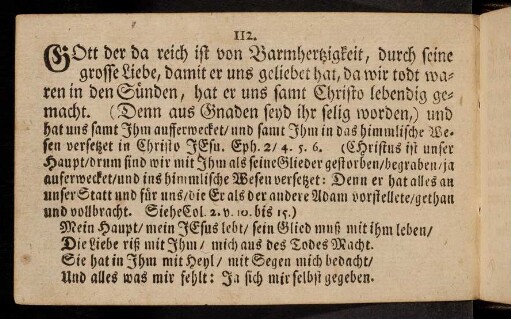 112.
GOtt der da reich ist von Barmhertzigkeit, durch seine
grosse Liebe, damit er uns geliebet hat, da wir todt wa-
ren in den Sünden, hat er uns samt Christo lebendig ge-
macht. (Denn aus Gnaden seyd ihr selig worden,) und
hat uns samt Ihm aufferwecket/ und samt Ihm in das himmlische We-
sen versetzet in Christo JEsu. Eph. 2/ 4. 5. 6. (CHristus ist unser
Haupt/ drum sind wir mit Ihm als seine Glieder gestorben/ begraben/ ja
auferwecket/ und ins himmlische Wesen versetzet: Denn er hat alles an
unser Statt und für uns/ die Er als der andere Adam vorstellete/ gethan
und vollbracht. Siehe Col. 2. v. 10. bis 15.)
Mein Haupt/ mein JEsus lebt/ sein Glied muß mit ihm leben/
Die Liebe riß mit Ihm/ mich aus des Todes Macht.
Sie hat in Ihm mit Heyl/ mit Segen mich bedacht/
Und alles was mir fehlt: Ja sich mir selbst gegeben.